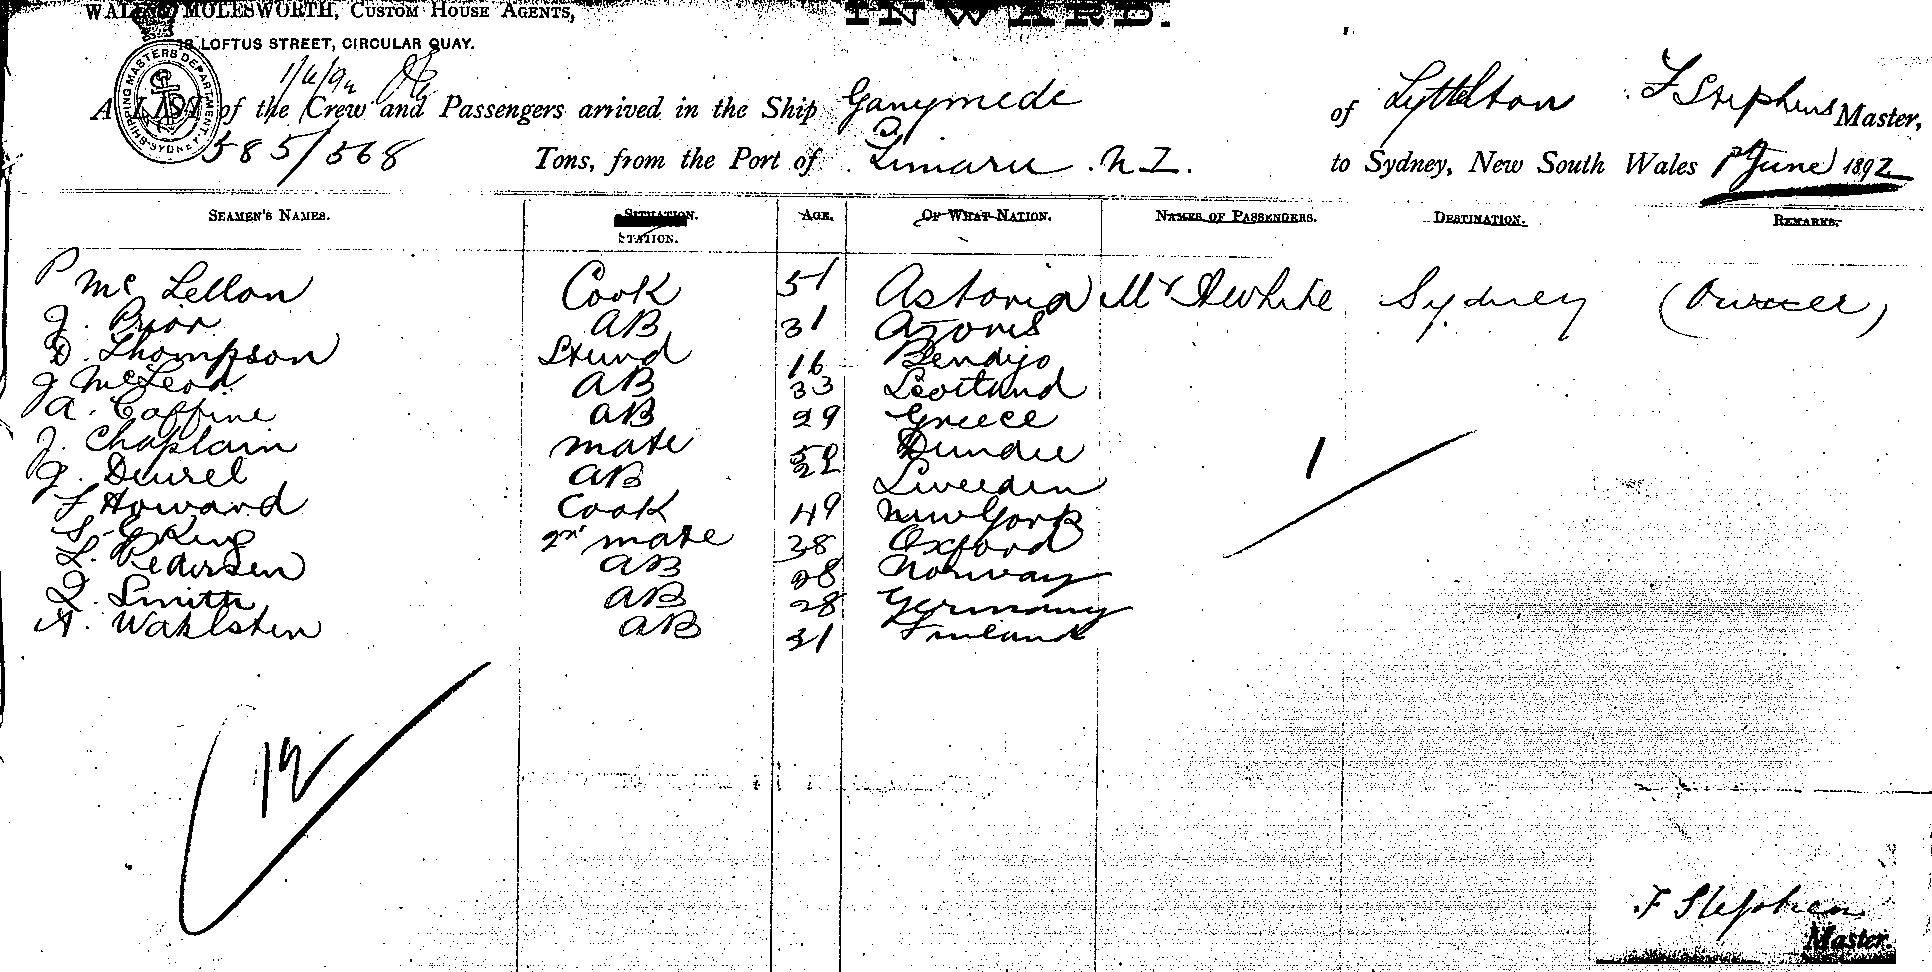 MOLESWORTH, CUSTOM HOUSE AGENTS,
INWARD.
LOFTUS STREET, CIRCULAR QUAY.
SHIPPING MASTERS DEPARTMENT SYDNEY
1/6/92
A LIST of the Crew and Passengers arrived in the Ship Ganymede of Lyttelton F Stephens Master,
585/568 Tons, from the Port of Timaru N.Z. to Sydney, New South Wales 1st June 1892
SEAMEN'S NAMES. STATION. AGE. OF WHAT NATION. NAMES OF PASSENGERS. DESTINATION. REMARKS.
P McLellan Cook 51 Astoria Mr White Sydney (Owner)
J. Prior AB 31 Azores
D. Thompson Stewd 16 Bendigo
J McLeod AB 33 Scotland
A. Caffine AB 29 Greece
J. Chaplain mate 52 Dundee
G. Deurel AB 22 Sweeden
F Howard Cook 49 New York
S. C. King 2nd mate 38 Oxford
L. Pedersen AB 28 Norway
J. Smith AB 28 Germany
A. Wahlsten AB 21 Finland
1
12
F Stephens
Master.